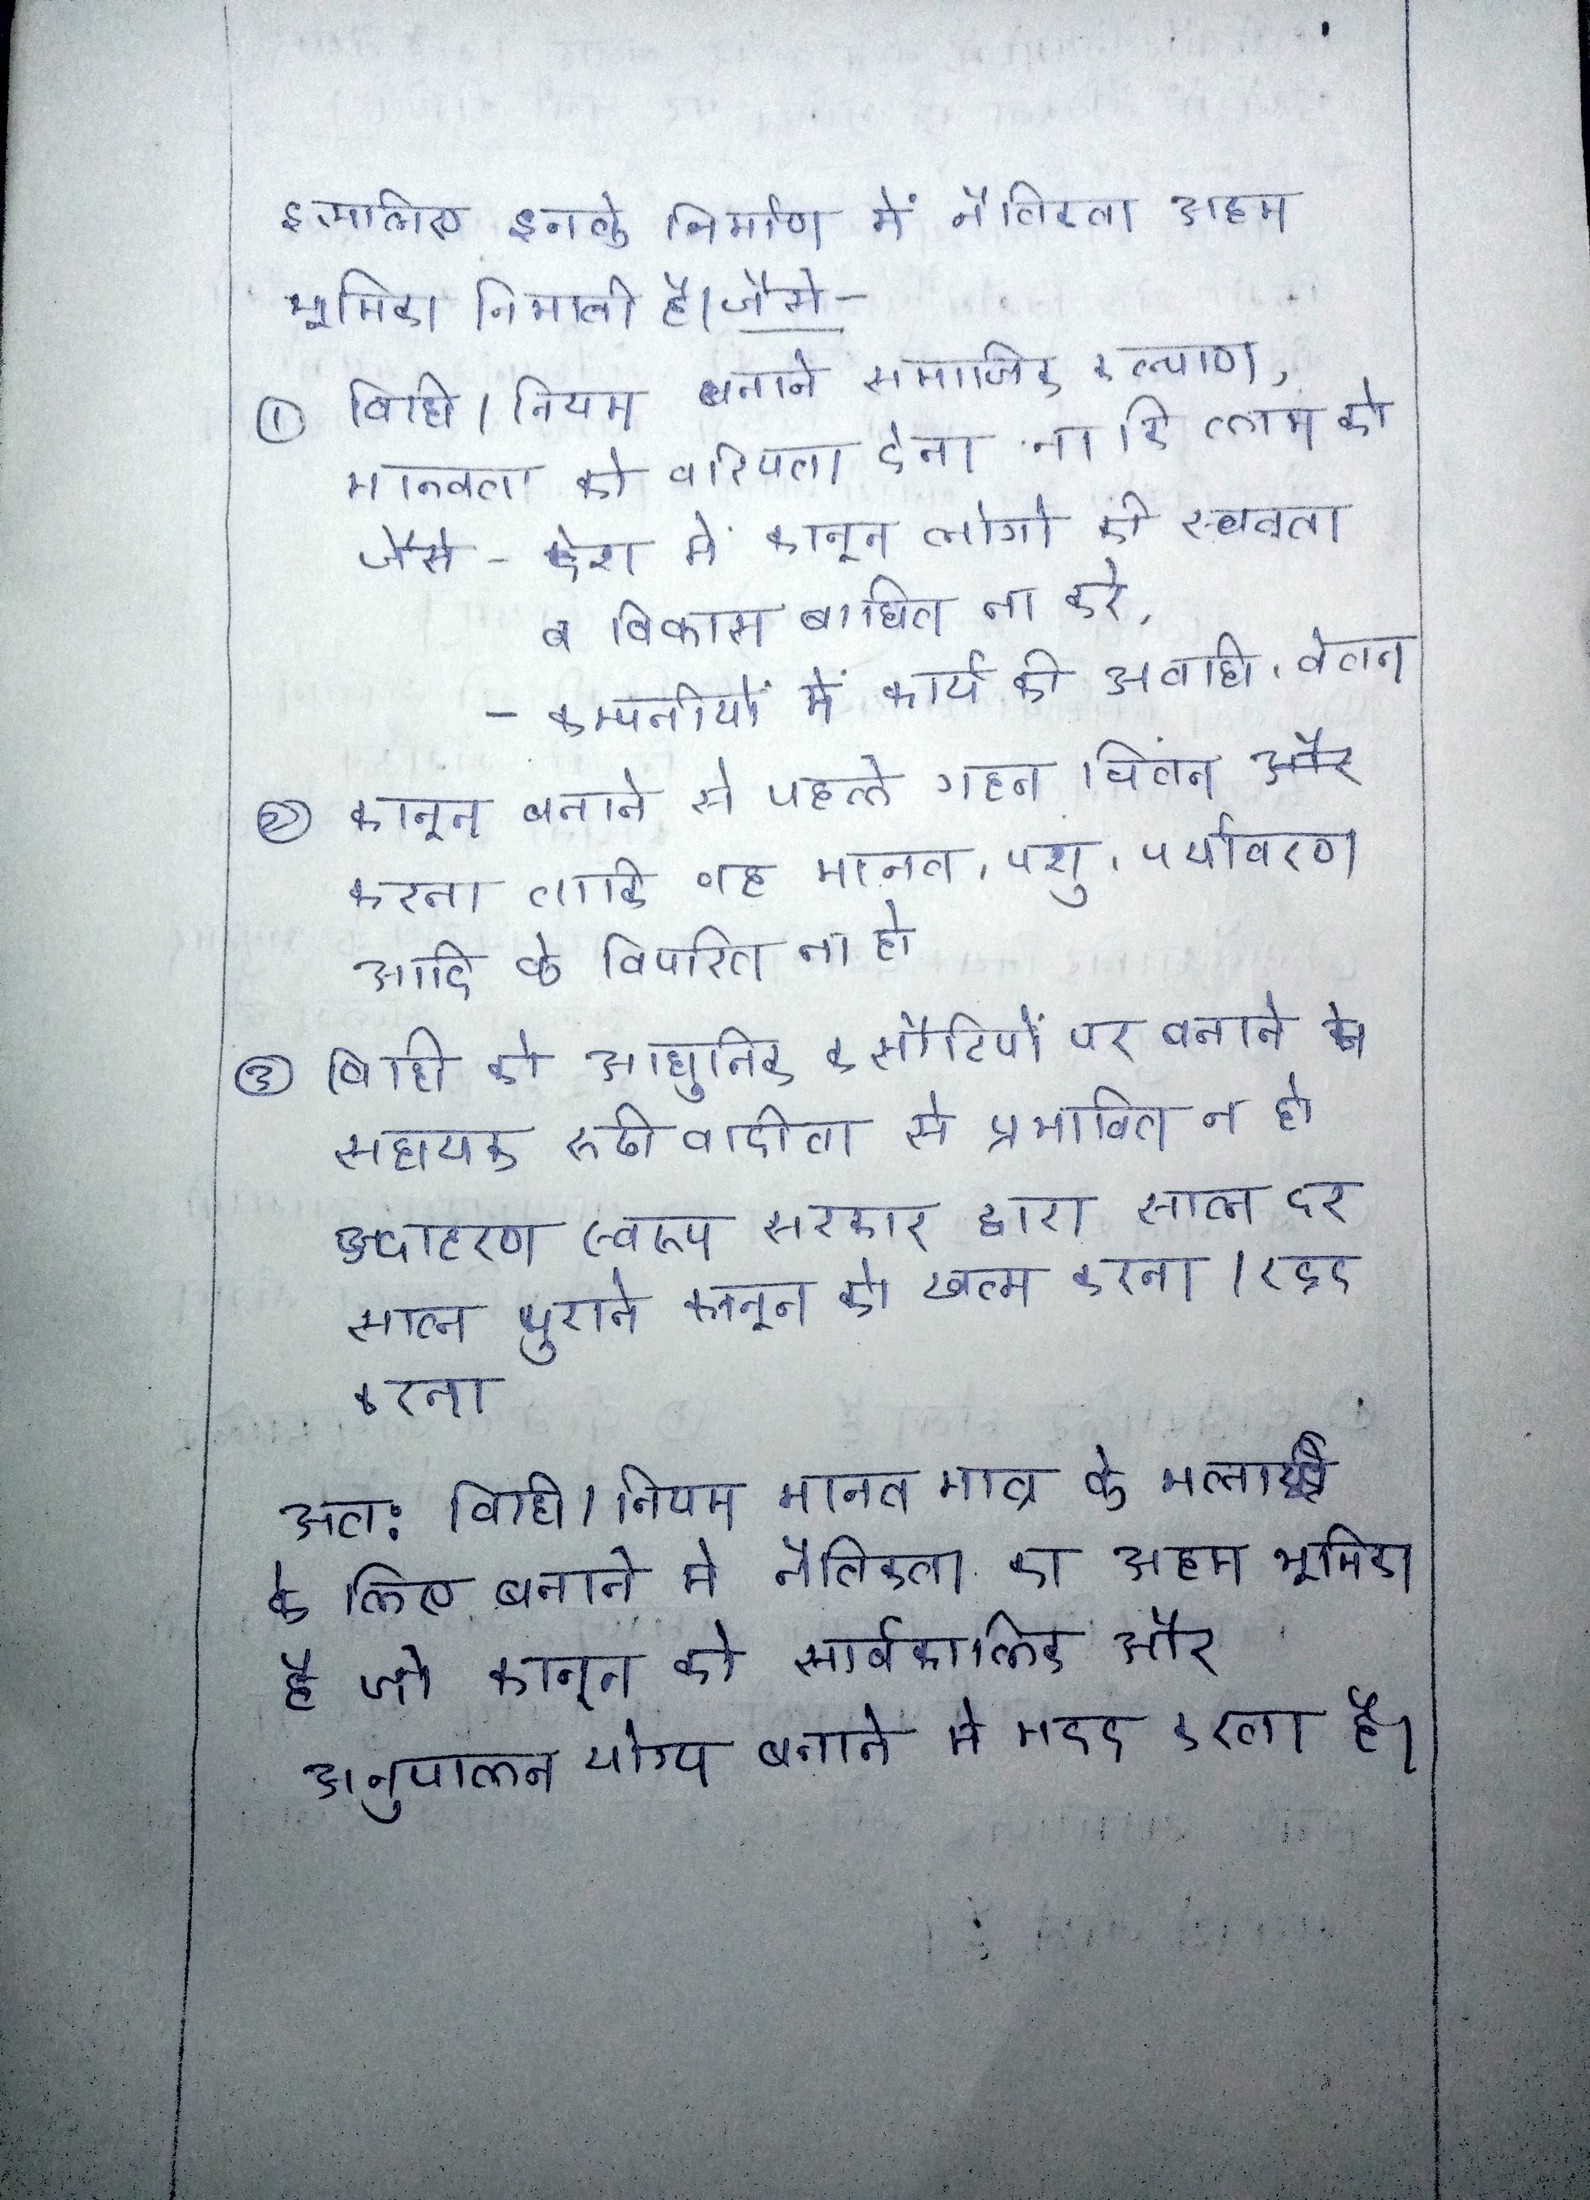 इसलिए इनके निर्माण में नैतिकता अहम
भूमिका निभाती है। जैसे-
① विधि / नियम बनाने समाजिक कल्याण,
मानवता को वरियता देना ना कि लाभ को
जैसे - देश में कानून लोगो की स्वतंत्रता
व विकास बाधित ना करे,
- कम्पनीयों में कार्य की अवधि, वेतन
② कानून बनाने से पहले गहन चिंतन और
करना ताकि वह मानव, पशु, पर्यावरण
आदि के विपरित ना हो
③ विधि को आधुनिक कसौटियों पर बनाने में
सहायक रूढीवादीता से प्रभावित न हो
उदाहरण स्वरूप सरकार द्वारा साल दर
साल पुराने कानून को खत्म करना / रद्द
करना
अतः विधि / नियम मानव मात्र के भलाई
के लिए बनाने मे नैतिकता का अहम भूमिका
है जो कानून को सार्वकालिक और
अनुपालन योग्य बनाने मे मदद करता है।